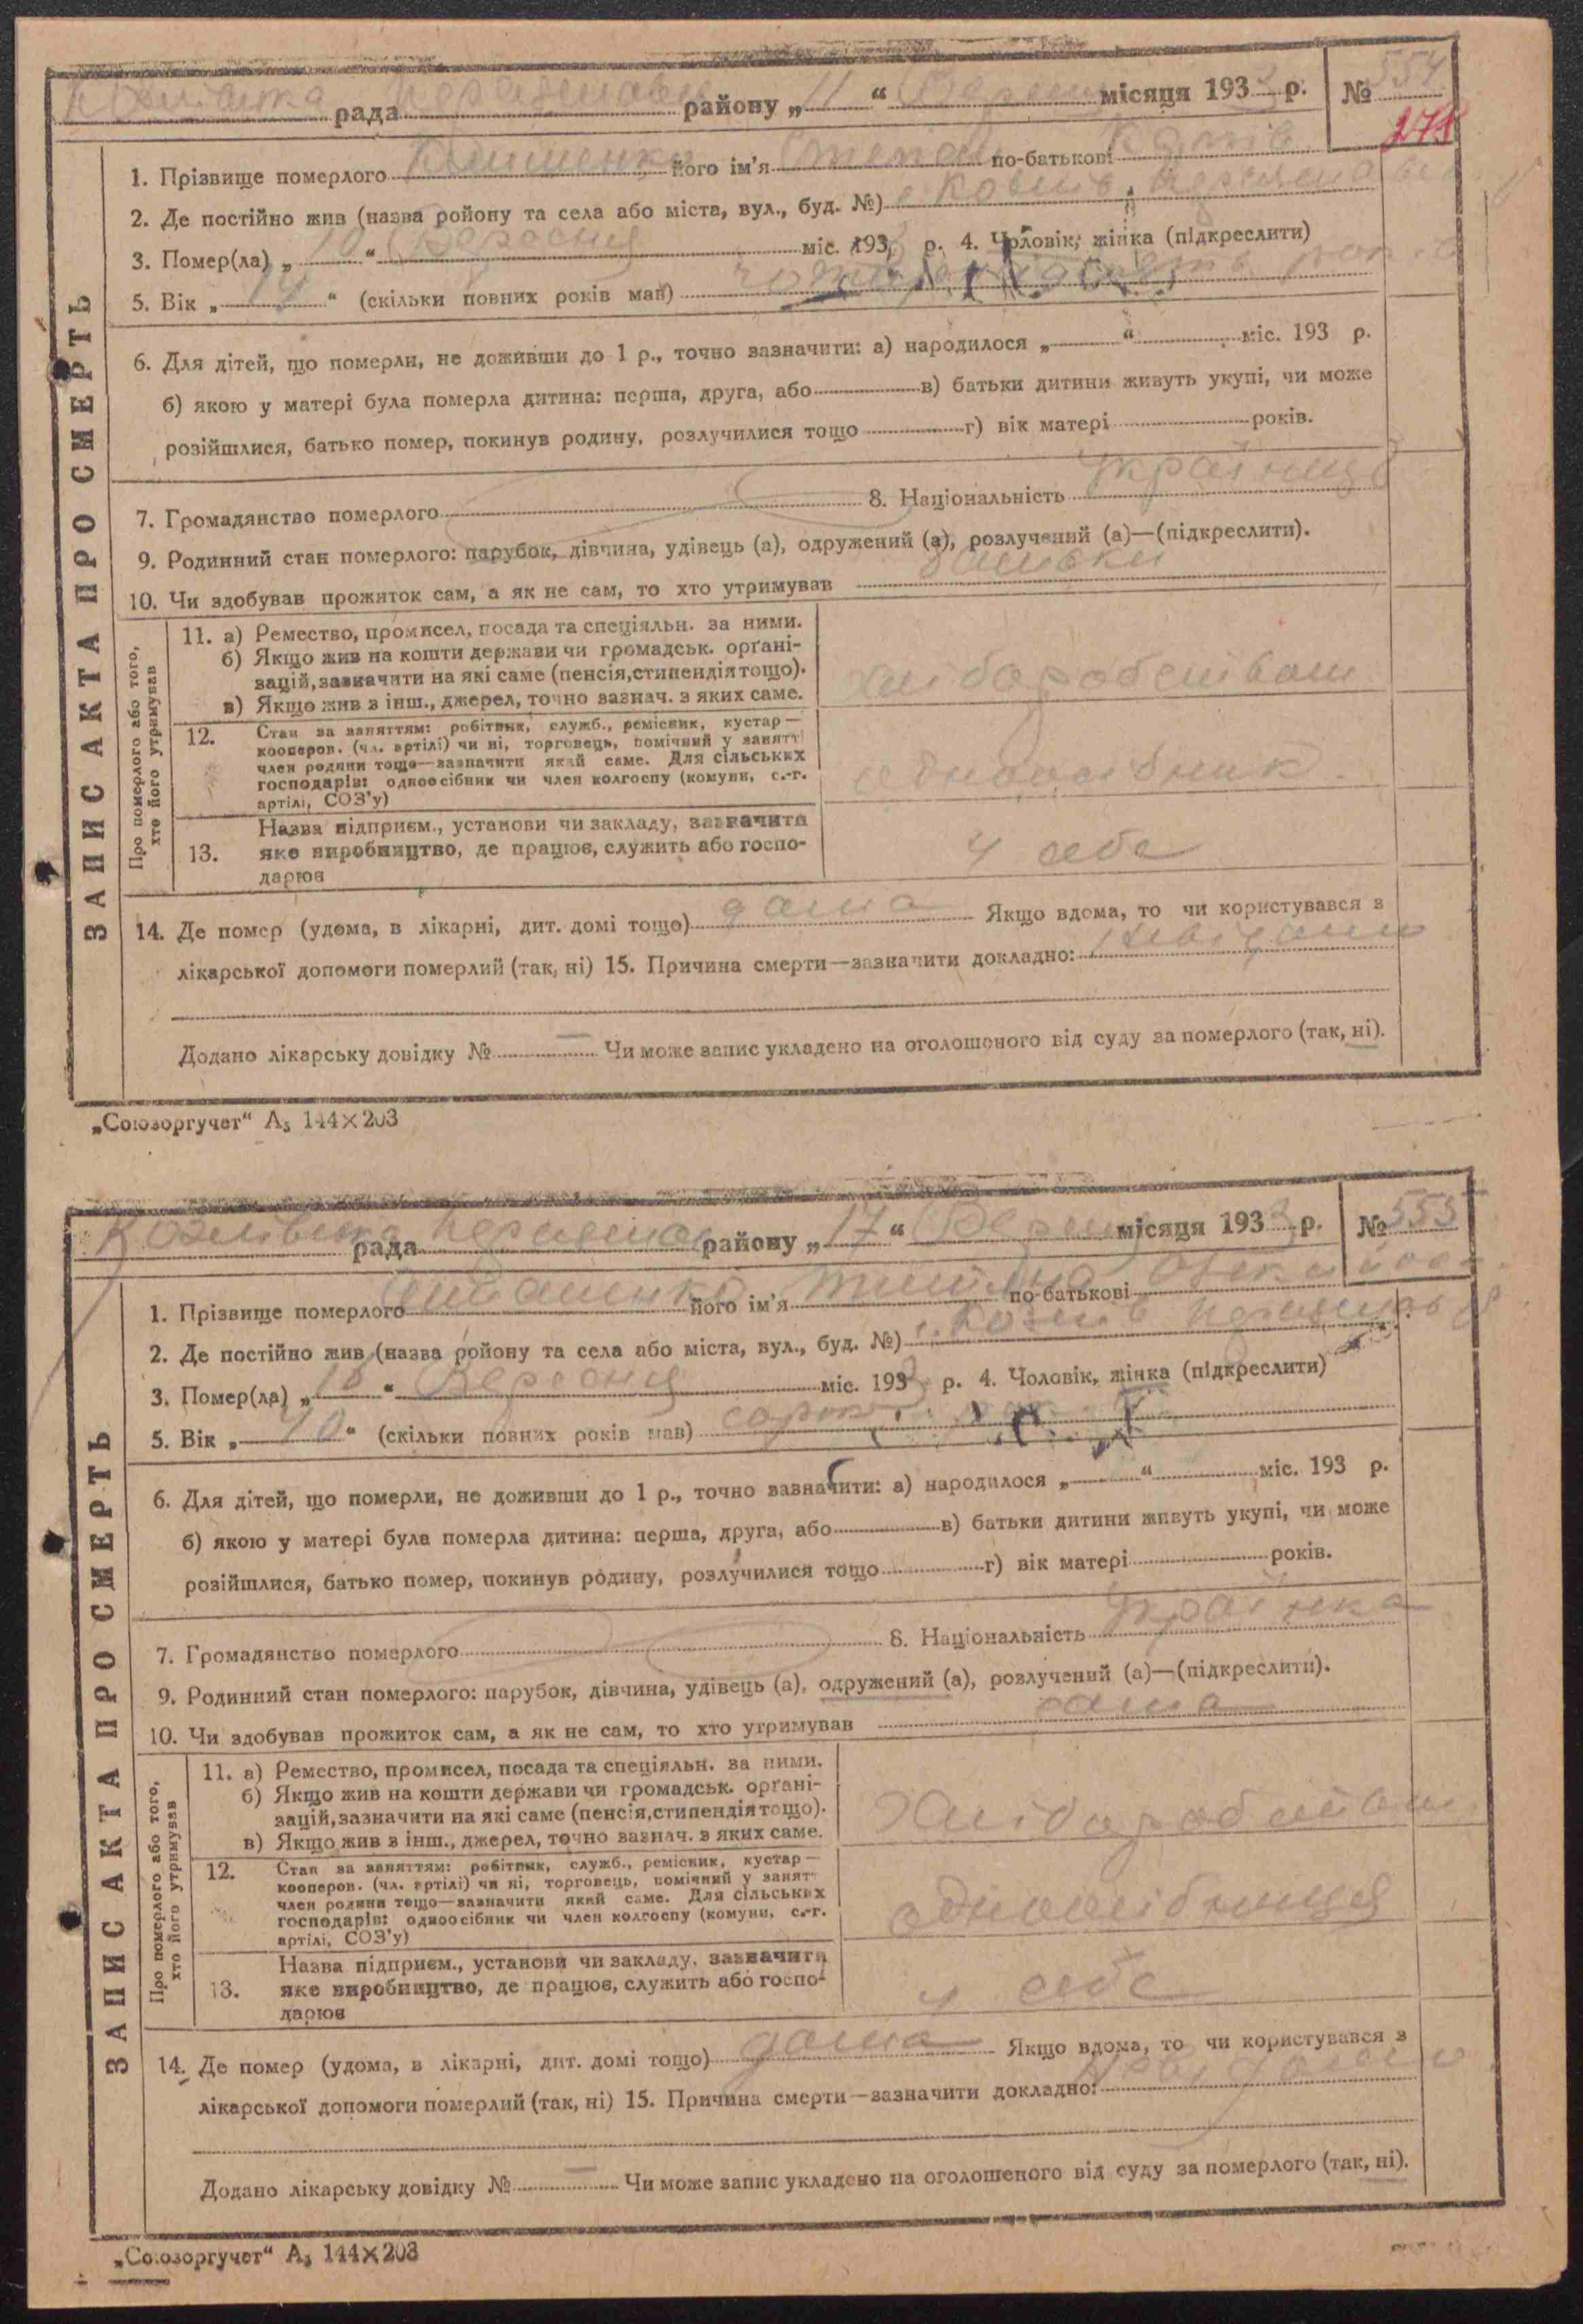 рада районy „ 11 “ місяця 193 3 р. № 554
278
1. Прізвище померлого його ім'я Степан по-батькові
2. Де постійно жив (назва ройону та села або міста, вул., буд. №)
3. Помер(ла) „ 10 “ Вересня міс. 193 3 р. 4. Чоловік, жінка (підкреслити)
5. Вік „ 14 “ (скільки повних років мав)
6. Для дітей, що померли, не доживши до 1 р., точно зазначити: а) народилося „ “ міс. 193 р.
б) якою у матері була померла дитина: перша, друга, або в) батьки дитини живуть укупі, чи може
розійшлися, батько помер, покинув родину, розлучилися тощо г) вік матері років.
7. Громадянство померлого 8. Національність Українець
9. Родинний стан померлого: парубок, дівчина, удівець (а), одружений (а), розлучений (а)—(підкреслити).
10. Чи здобував прожиток сам, а як не сам, то хто утримував батьки
ЗАПИС АКТА ПРО СМЕРТЬ
Про померлого або того,
хто його утримував
11. а) Ремество, промисел, посада та спеціяльн. за ними.
б) Якщо жив на кошти держави чи громадськ. орґані-
зацій, зазначити на які саме (пенсія, стипендія тощо).
в) Якщо жив з інш., джерел, точно зазнач. з яких саме.
хліборобством
12. Стан за заняттям: робітник, служб., ремісник, кустар —
кооперов. (чл. артілі) чи ні, торговець, помічний у занятті
член родини тощо—зазначити який саме. Для сільських
господарів: одноосібник чи член колгоспу (комуни, с.-г.
артілі, СОЗ'у)
одноосібник
13. Назва підприєм., установи чи закладу, зазначити
яке виробництво, де працює, служить або госпо-
дарює
у себе
14. Де помер (удома, в лікарні, дит. домі тощо) дома Якщо вдома, то чи користувався з
лікарської допомоги померлий (так, ні) 15. Причина смерти—зазначити докладно: Невідомо
Додано лікарську довідку № — Чи може запис укладено на оголошоного від суду за померлого (так, ні).
„Союзоргучет“ А₅ 144×203
рада районy „ 17 “ місяця 193 3 р. № 555
1. Прізвище померлого його ім'я по-батькові
2. Де постійно жив (назва ройону та села або міста, вул., буд. №)
3. Помер(ла) „ “ Вересня міс. 193 3 р. 4. Чоловік, жінка (підкреслити)
5. Вік „ 40 “ (скільки повних років мав) сорок
6. Для дітей, що померли, не доживши до 1 р., точно зазначити: а) народилося „ “ міс. 193 р.
б) якою у матері була померла дитина: перша, друга, або в) батьки дитини живуть укупі, чи може
розійшлися, батько помер, покинув родину, розлучилися тощо г) вік матері років.
7. Громадянство померлого 8. Національність Українка
9. Родинний стан померлого: парубок, дівчина, удівець (а), одружений (а), розлучений (а)—(підкреслити).
10. Чи здобував прожиток сам, а як не сам, то хто утримував сама
ЗАПИС АКТА ПРО СМЕРТЬ
Про померлого або того,
хто його утримував
11. а) Ремество, промисел, посада та спеціяльн. за ними.
б) Якщо жив на кошти держави чи громадськ. орґані-
зацій, зазначити на які саме (пенсія, стипендія тощо).
в) Якщо жив з інш., джерел, точно зазнач. з яких саме.
Хліборобством
12. Стан за заняттям: робітник, служб., ремісник, кустар —
кооперов. (чл. артілі) чи ні, торговець, помічний у занятт
член родини тощо—зазначити який саме. Для сільських
господарів: одноосібник чи член колгоспу (комуни, с.-г.
артілі, СОЗ'у)
одноосібниця
13. Назва підприєм., установи чи закладу, зазначити
яке виробництво, де працює, служить або госпо-
дарює
у себе
14. Де помер (удома, в лікарні, дит. домі тощо) дома Якщо вдома, то чи користувався з
лікарської допомоги померлий (так, ні) 15. Причина смерти—зазначити докладно: Невідомо
Додано лікарську довідку № — Чи може запис укладено на оголошеного від суду за померлого (так, ні).
„Союзоргучет“ А₅ 144×203